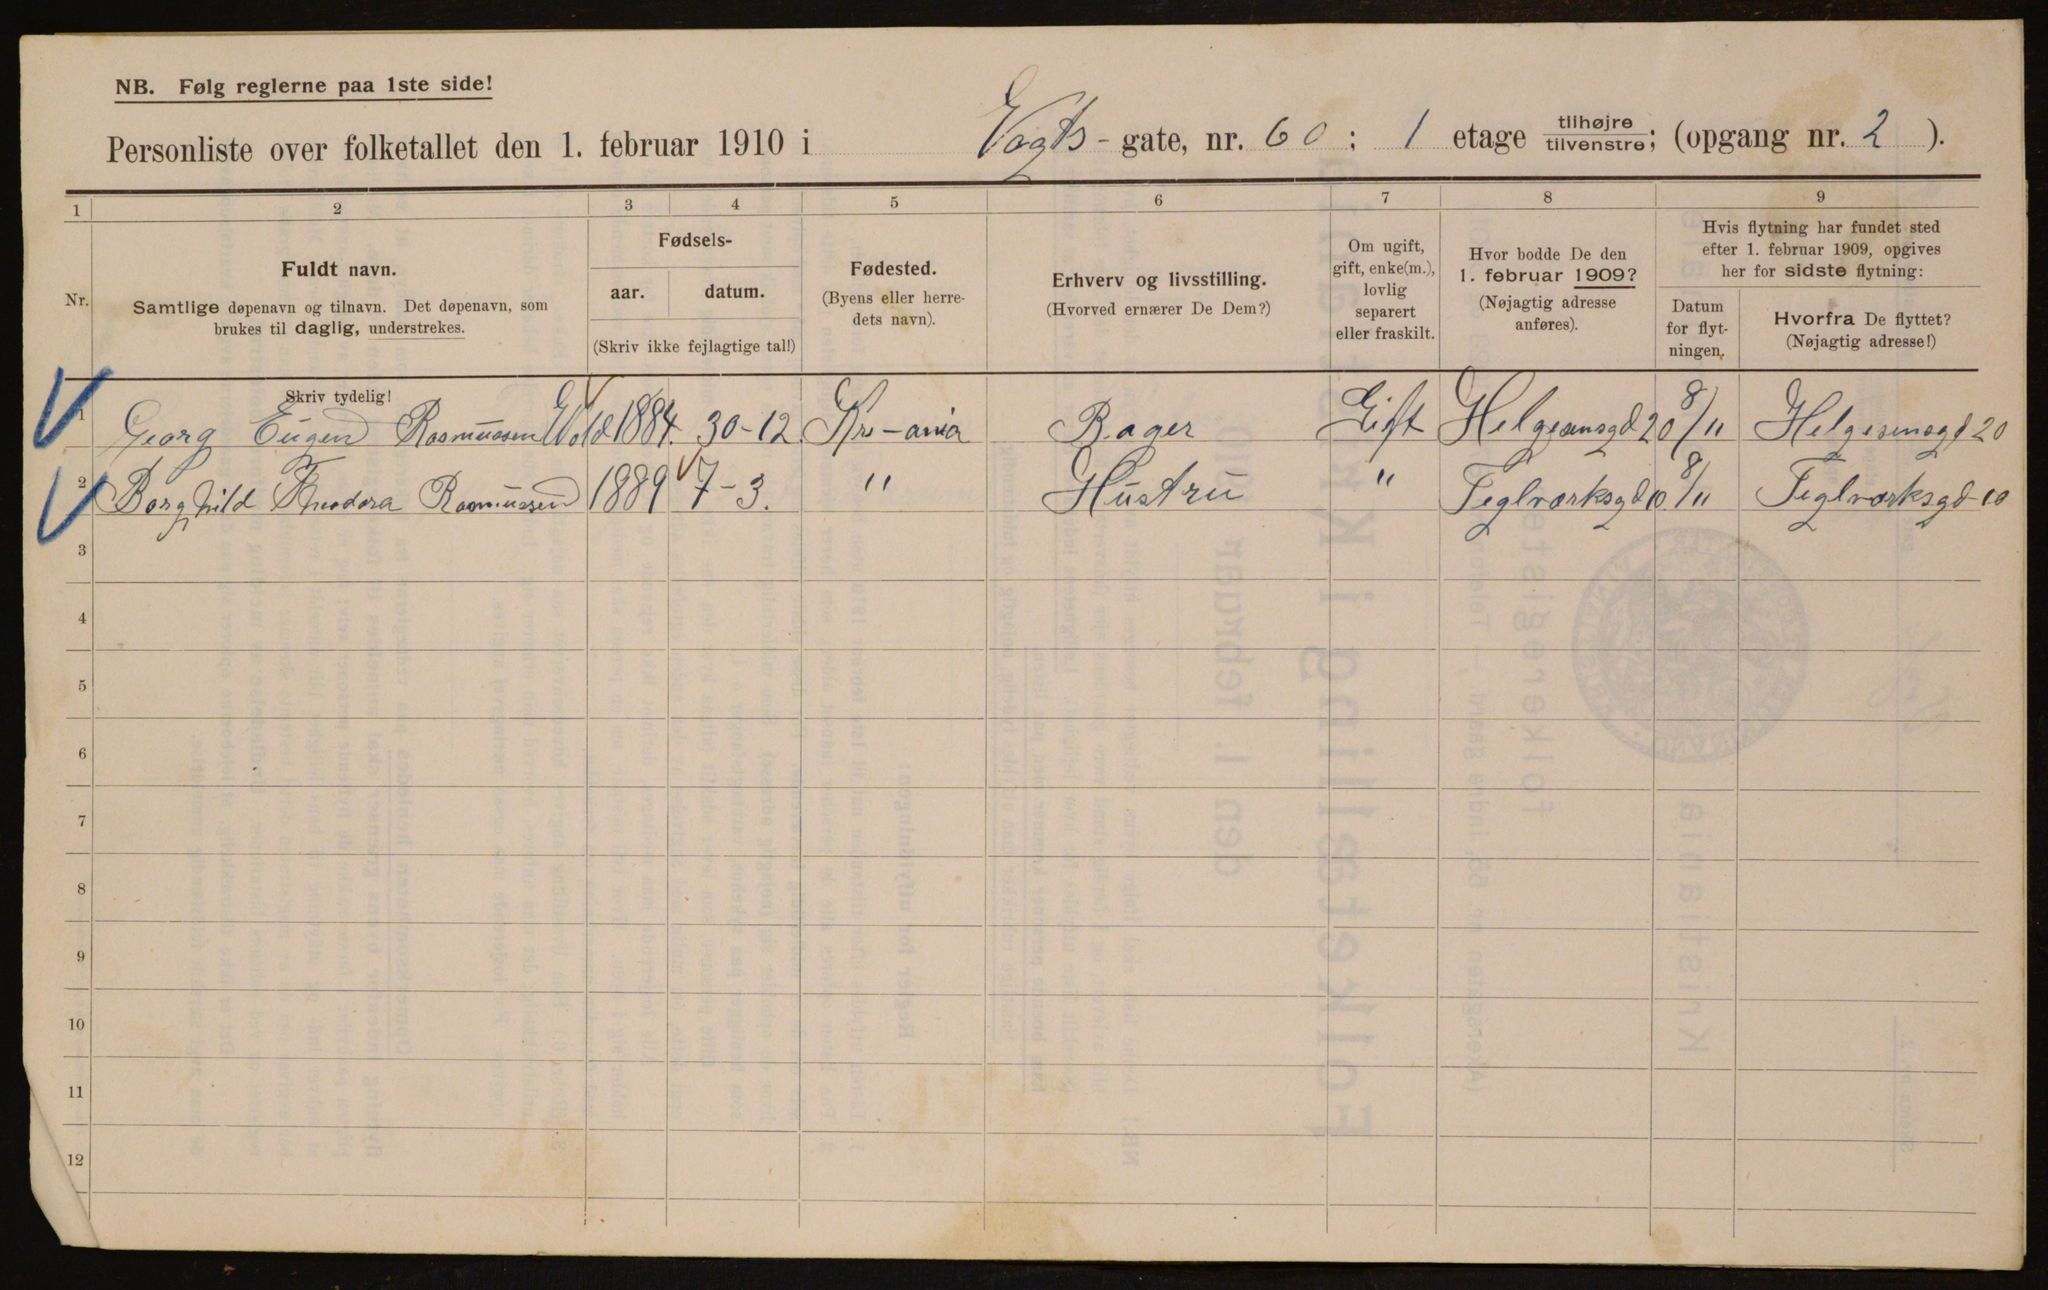 NB. Følg reglerne paa 1ste side!
Personliste over folketallet den 1. februar 1910 i Vogts - gate, nr. 60 ; 1 etage tilhøjre/tilvenstre; (opgang nr. 2 ).
1 2 3 4 5 6 7 8 9
Nr.
Fuldt navn.
Samtlige døpenavn og tilnavn. Det døpenavn, som
brukes til daglig, understrekes.
Fødsels-
aar. datum.
(Skriv ikke fejlagtige tal!)
Fødested.
(Byens eller herre-
dets navn).
Erhverv og livsstilling.
(Hvorved ernærer De Dem?)
Om ugift,
gift, enke(m.),
lovlig
separert
eller fraskilt.
Hvor bodde De den
1. februar 1909?
(Nøjagtig adresse
anføres).
Hvis flytning har fundet sted
efter 1. februar 1909, opgives
her for sidste flytning:
Datum
for flyt-
ningen.
Hvorfra De flyttet?
(Nøjagtig adresse!)
Skriv tydelig!
1 Georg Eugen Rasmussen Wold 1884. 30-12. Kr-ania Bager Gift Helgesensgd 20 8/11 Helgesensgd 20
2 Borghild Theodora Rasmussen 1889 7-3. " Hustru " Teglværksgd 10. 8/11 Teglværksgd-10
3
4
5
6
7
8
9
10
11
12